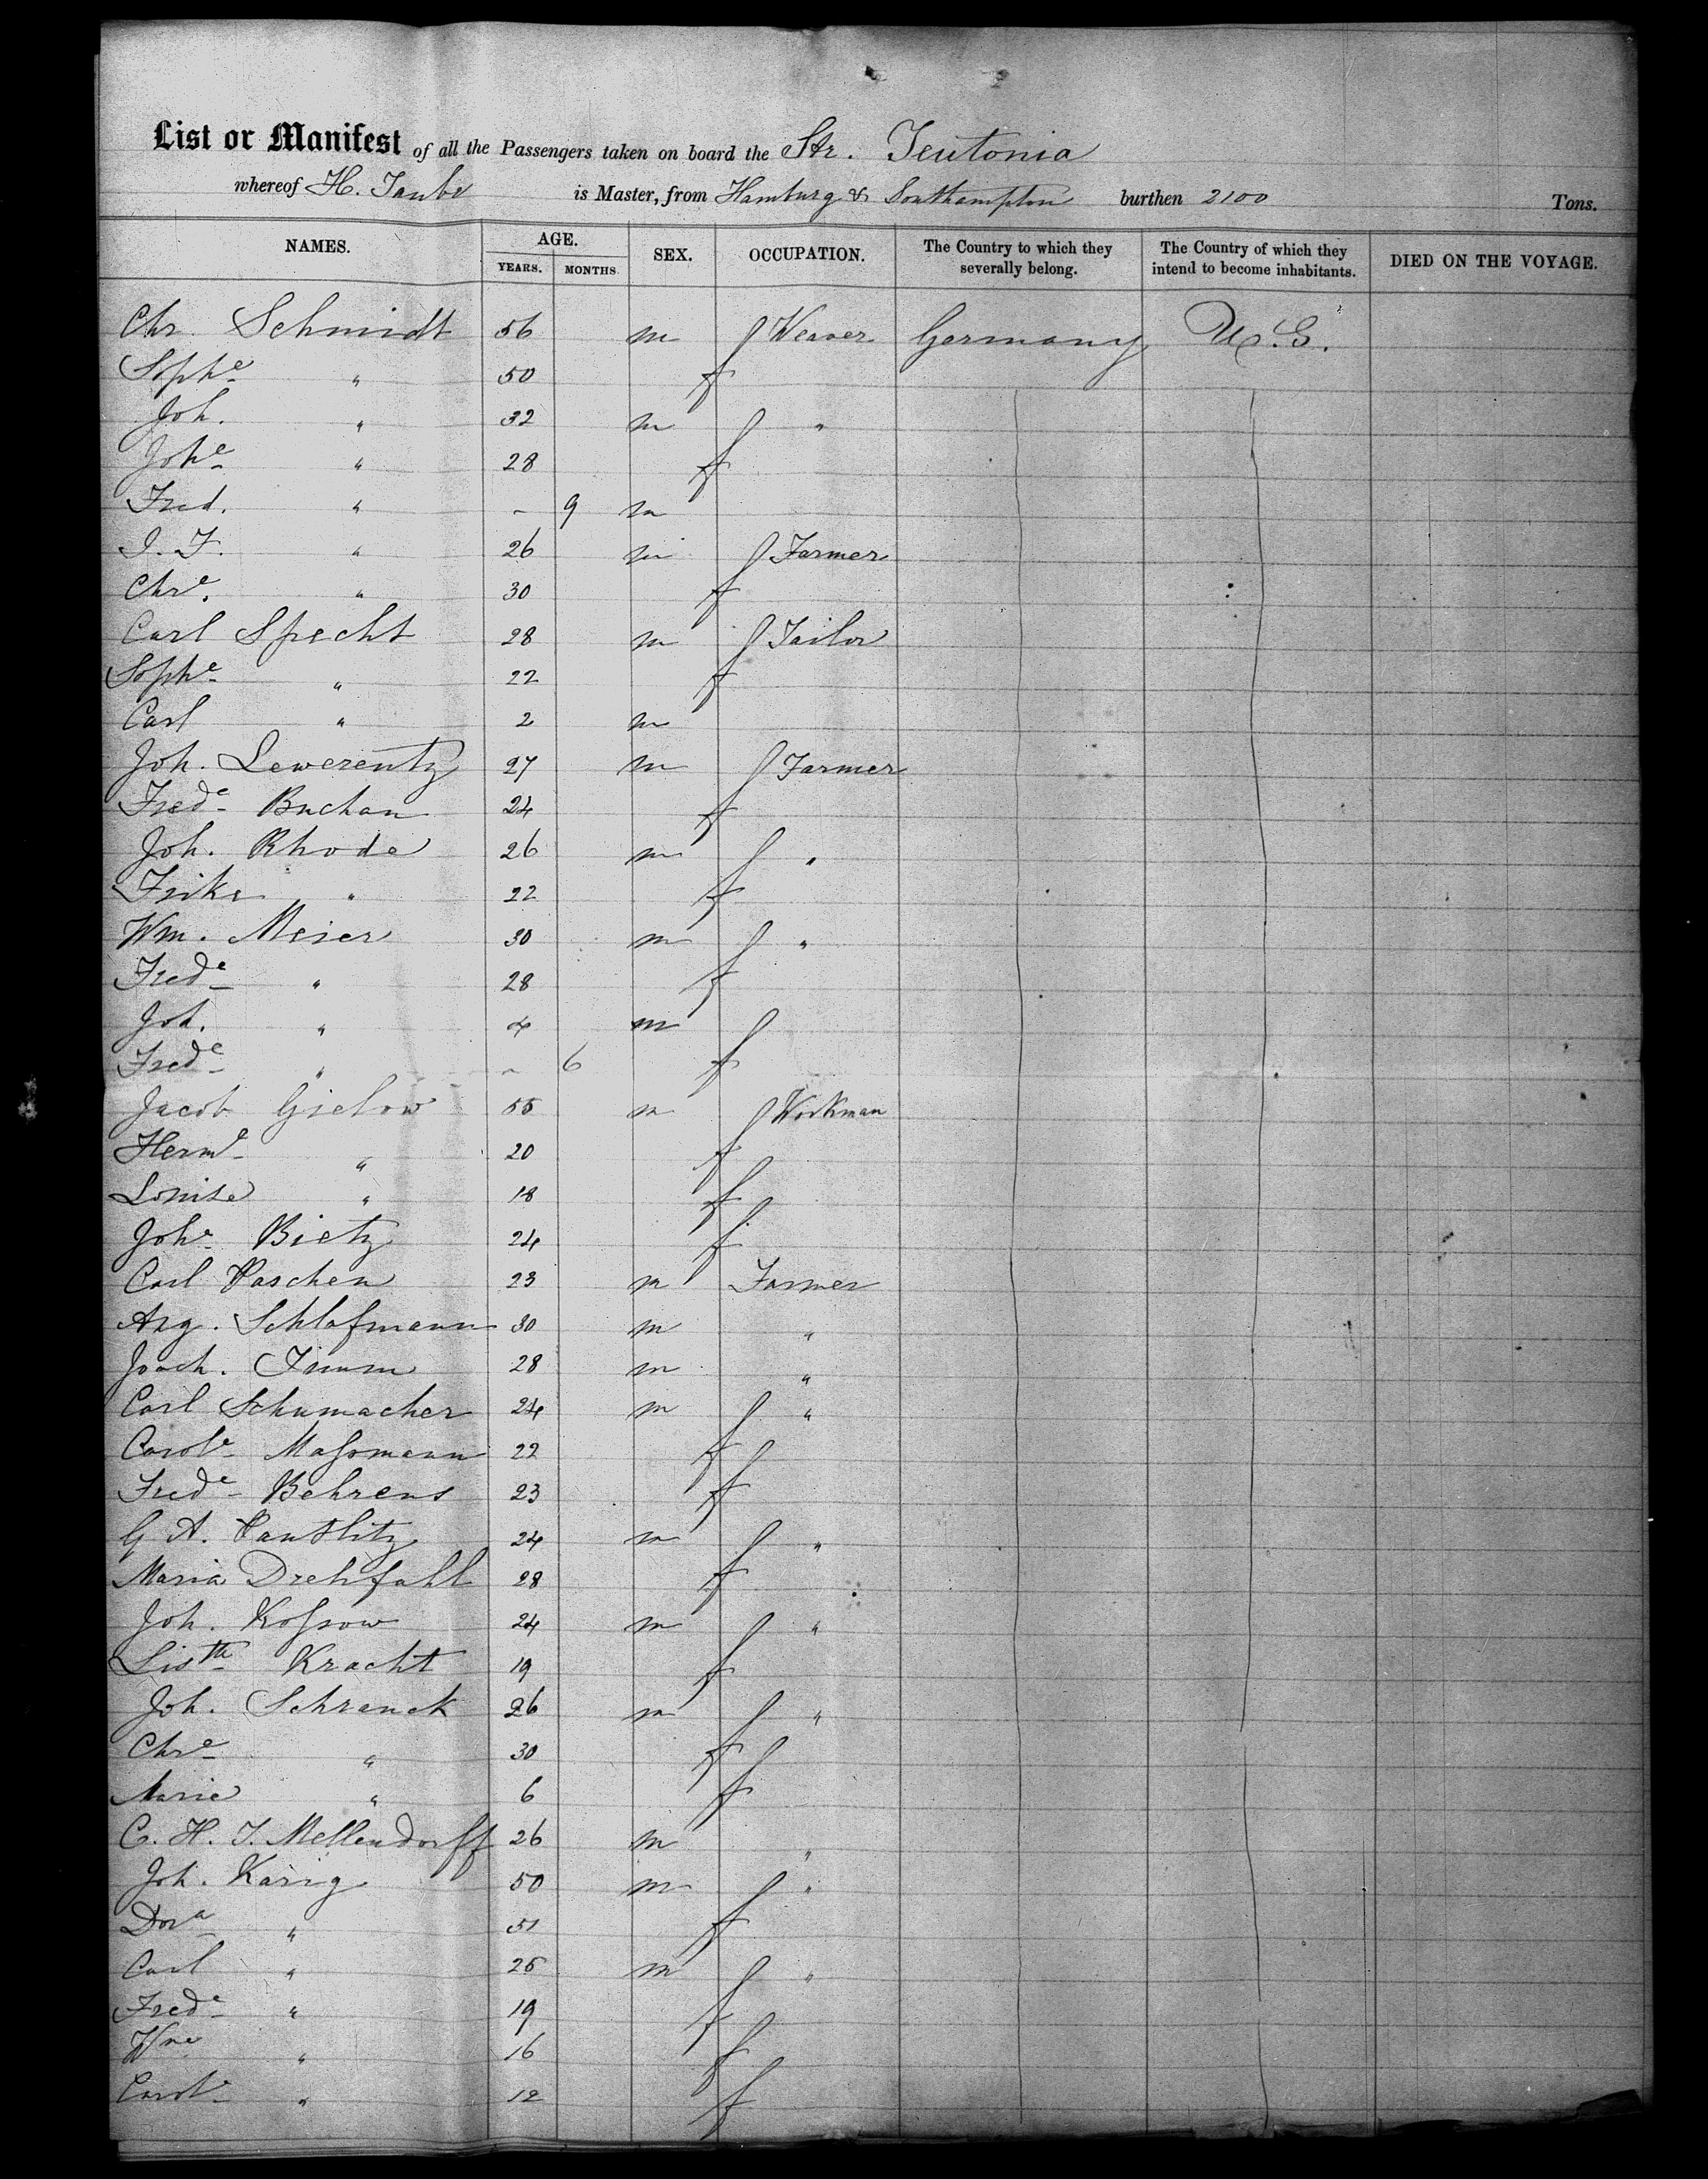 List or Manifest of all the Passengers taken on board the Str. Teutonia
whereof H. Taube is Master, from Hamburg & Southampton burthen 2100 Tons.
NAMES. AGE. YEARS. MONTHS. SEX. OCCUPATION. The Country to which they severally belong. The Country of which they intend to become inhabitants. DIED ON THE VOYAGE.
Chr. Schmidt 56 m Weaver Germany U.S.
Sophe " 50 f
Joh. " 32 m "
Johe " 28 f
Fred. " - 9 m
J. F. " 26 m Farmer
Chre. " 30 f
Carl Specht 28 m Tailor
Sophe " 22 f
Carl " 2 m
Joh. Lewerentz 27 m Farmer
Frede Buchan 24 f
Joh. Rhode 26 m "
Frike " 22 f
Wm. Meier 30 m "
Frede " 28 f
Joh. " 4 m
Frede " - 6 f
Jacob Gielow 55 m Workman
Herme " 20 f
Louise " 18 f
Johe Bietz 24 f
Carl Paschen 23 m Farmer
Aug. Schlafmann 30 m "
Joach. Timm 28 m "
Carl Schumacher 24 m "
Carole Maßmann 22 f
Frede Behrens 23 f
G A. 24 m "
Maria Drehfahl 28 f
Joh. Koßow 24 m "
Listh Kracht 19 f
Joh. Schranck 26 m "
Chre " 30 f
Marie " 6 f
C. H. J. Mellendorff 26 m "
Joh. Karig 50 m "
Dora " 51 f
Carl " 25 m "
Frede " 19 f
Wne " 16 f
Carole " 12 f